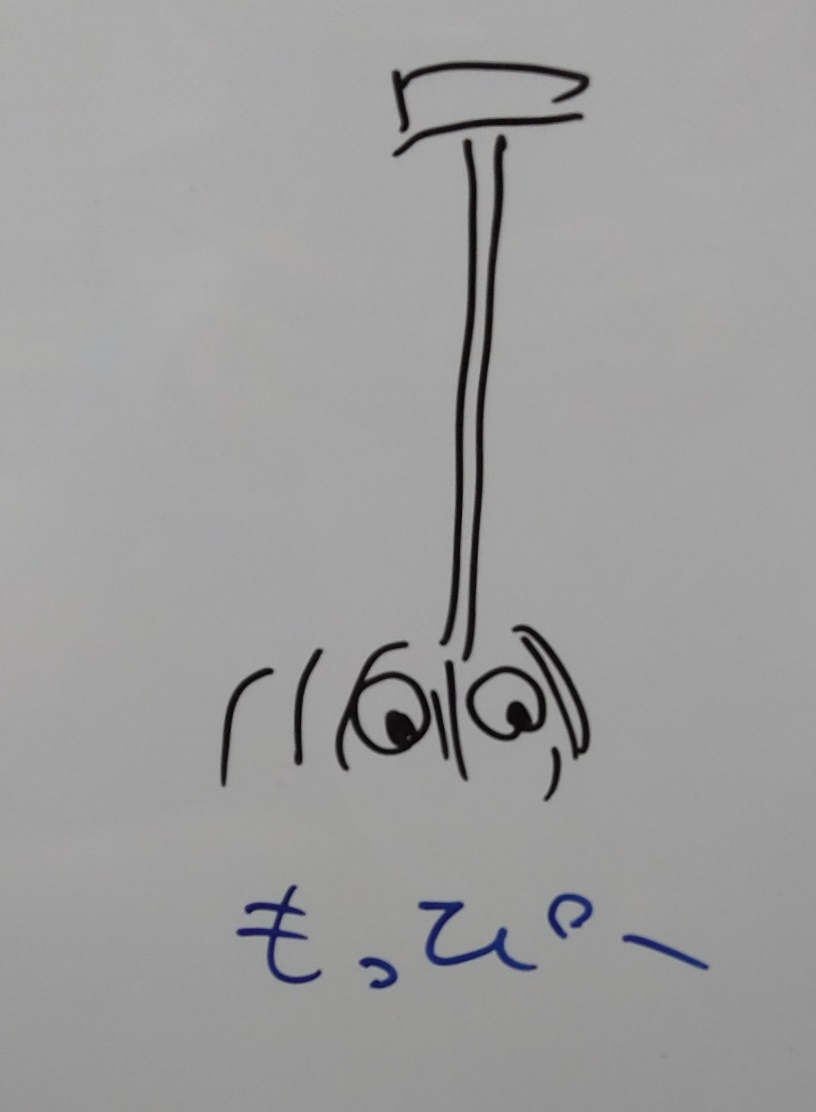 もっぴー